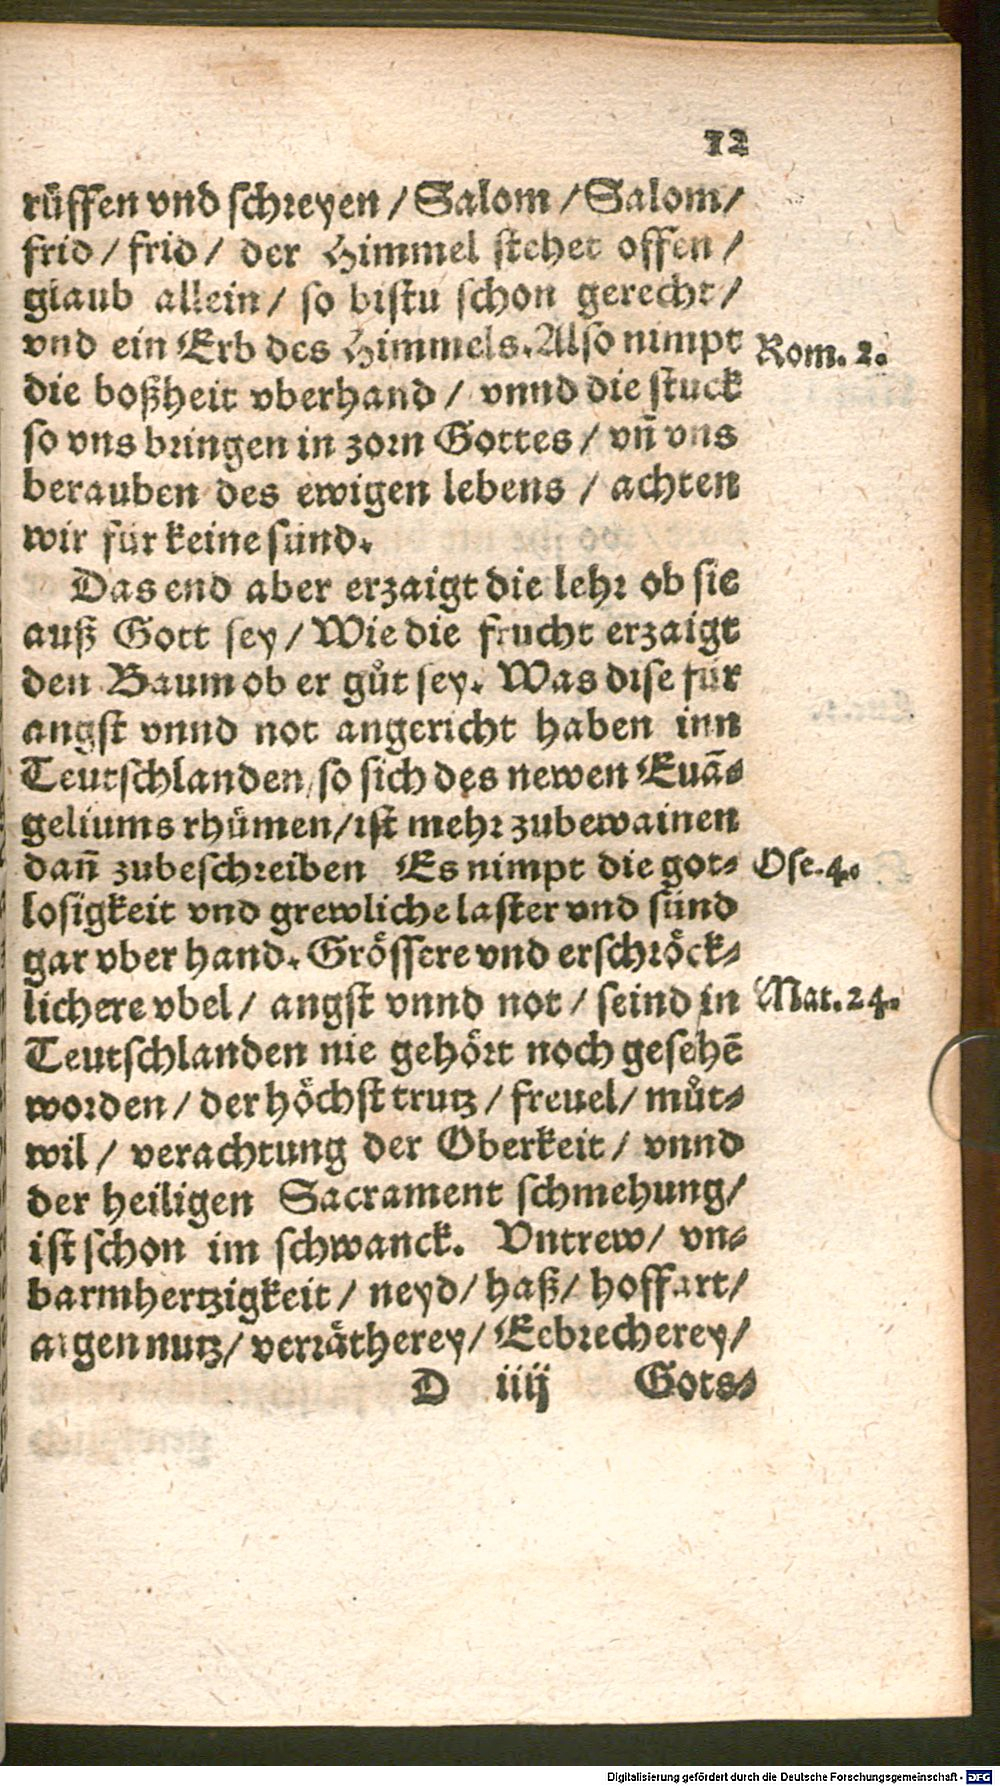 12
rüffen vnd schreyen / Salom / Salom /
frid / frid / der Himmel stehet offen /
glaub allein / so bistu schon gerecht /
vnd ein Erb des Himmels. Also nimpt
Rom. 2.
die boßheit vberhand / vnnd die stuck
so vns bringen in zorn Gottes / vñ vns
berauben des ewigen lebens / achten
wir für keine sünd.
Das end aber erzaigt die lehr ob sie
auß Gott sey / Wie die frucht erzaigt
den Baum ob er gůt sey. Was dise für
angst vnnd not angericht haben inn
Teutschlanden / so sich des newen Euā⸗
geliums rhümen / ist mehr zubewainen
dañ zubeschreiben Es nimpt die got⸗
Ose. 4.
losigkeit vnd grewliche laster vnd sünd
gar vber hand. Grössere vnd erschröck⸗
lichere vbel / angst vnnd not / seind in
Mat. 24.
Teutschlanden nie gehört noch gesehē
worden / der höchst trutz / freuel / můt⸗
wil / verachtung der Oberkeit / vnnd
der heiligen Sacrament schmehung /
ist schon im schwanck. Vntrew / vn⸗
barmhertzigkeit / neyd / haß / hoffart /
aigen nutz / verrätherey / Eebrecherey /
D iiij Gots⸗
Digitalisierung gefördert durch die Deutsche Forschungsgemeinschaft - DFG